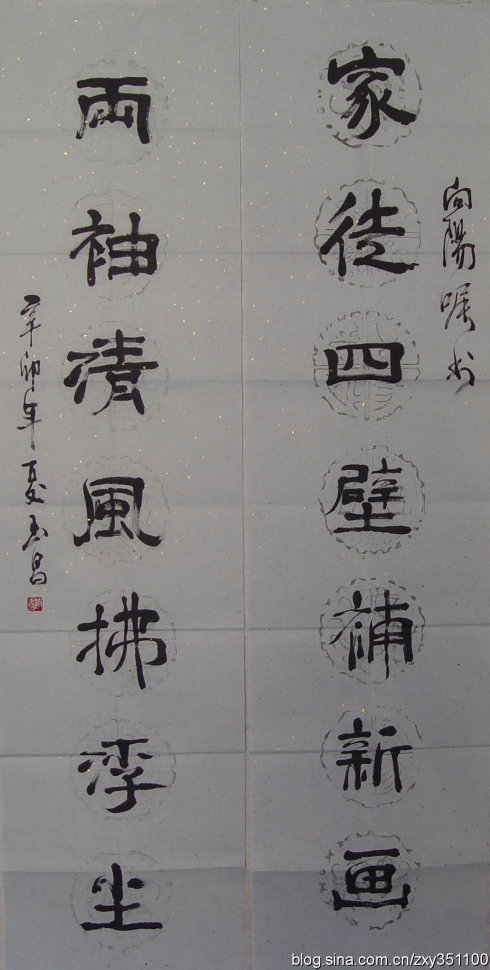 向陽嘱书
家徒四壁補新画
兩袖清風拂浮尘
辛卯年夏玉昌
blog.sina.com.cn/zxy351100